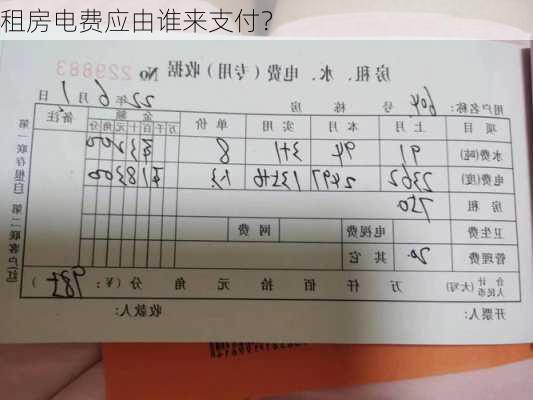 租房电费应由谁来支付?
房租、水、电费(专用)收据 No
用户名称: 604 号 栋 房 22年6月1日
项目 上月 本月 实用 单价 金额 备注
万千百十元角分
水费(吨) 91 94 3+1 8 ¥3200
电费(度) 2362 2497 135+6 1.3 ¥18300
房租 750
卫生费 电视费 网费
管理费 20. 其它
合计人民币(大写) 万 仟 佰 拾 元 角 分(¥: 987)
开票人: 收款人:
第一联存根(白) 第二联客户(红)